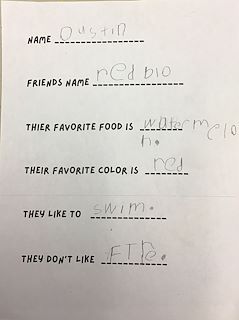 NAME Oustin
FRIENDS NAME redbio
THIER FAVORITE FOOD IS watermelo
n.
THEIR FAVORITE COLOR IS red
THEY LIKE TO swim.
THEY DON'T LIKE